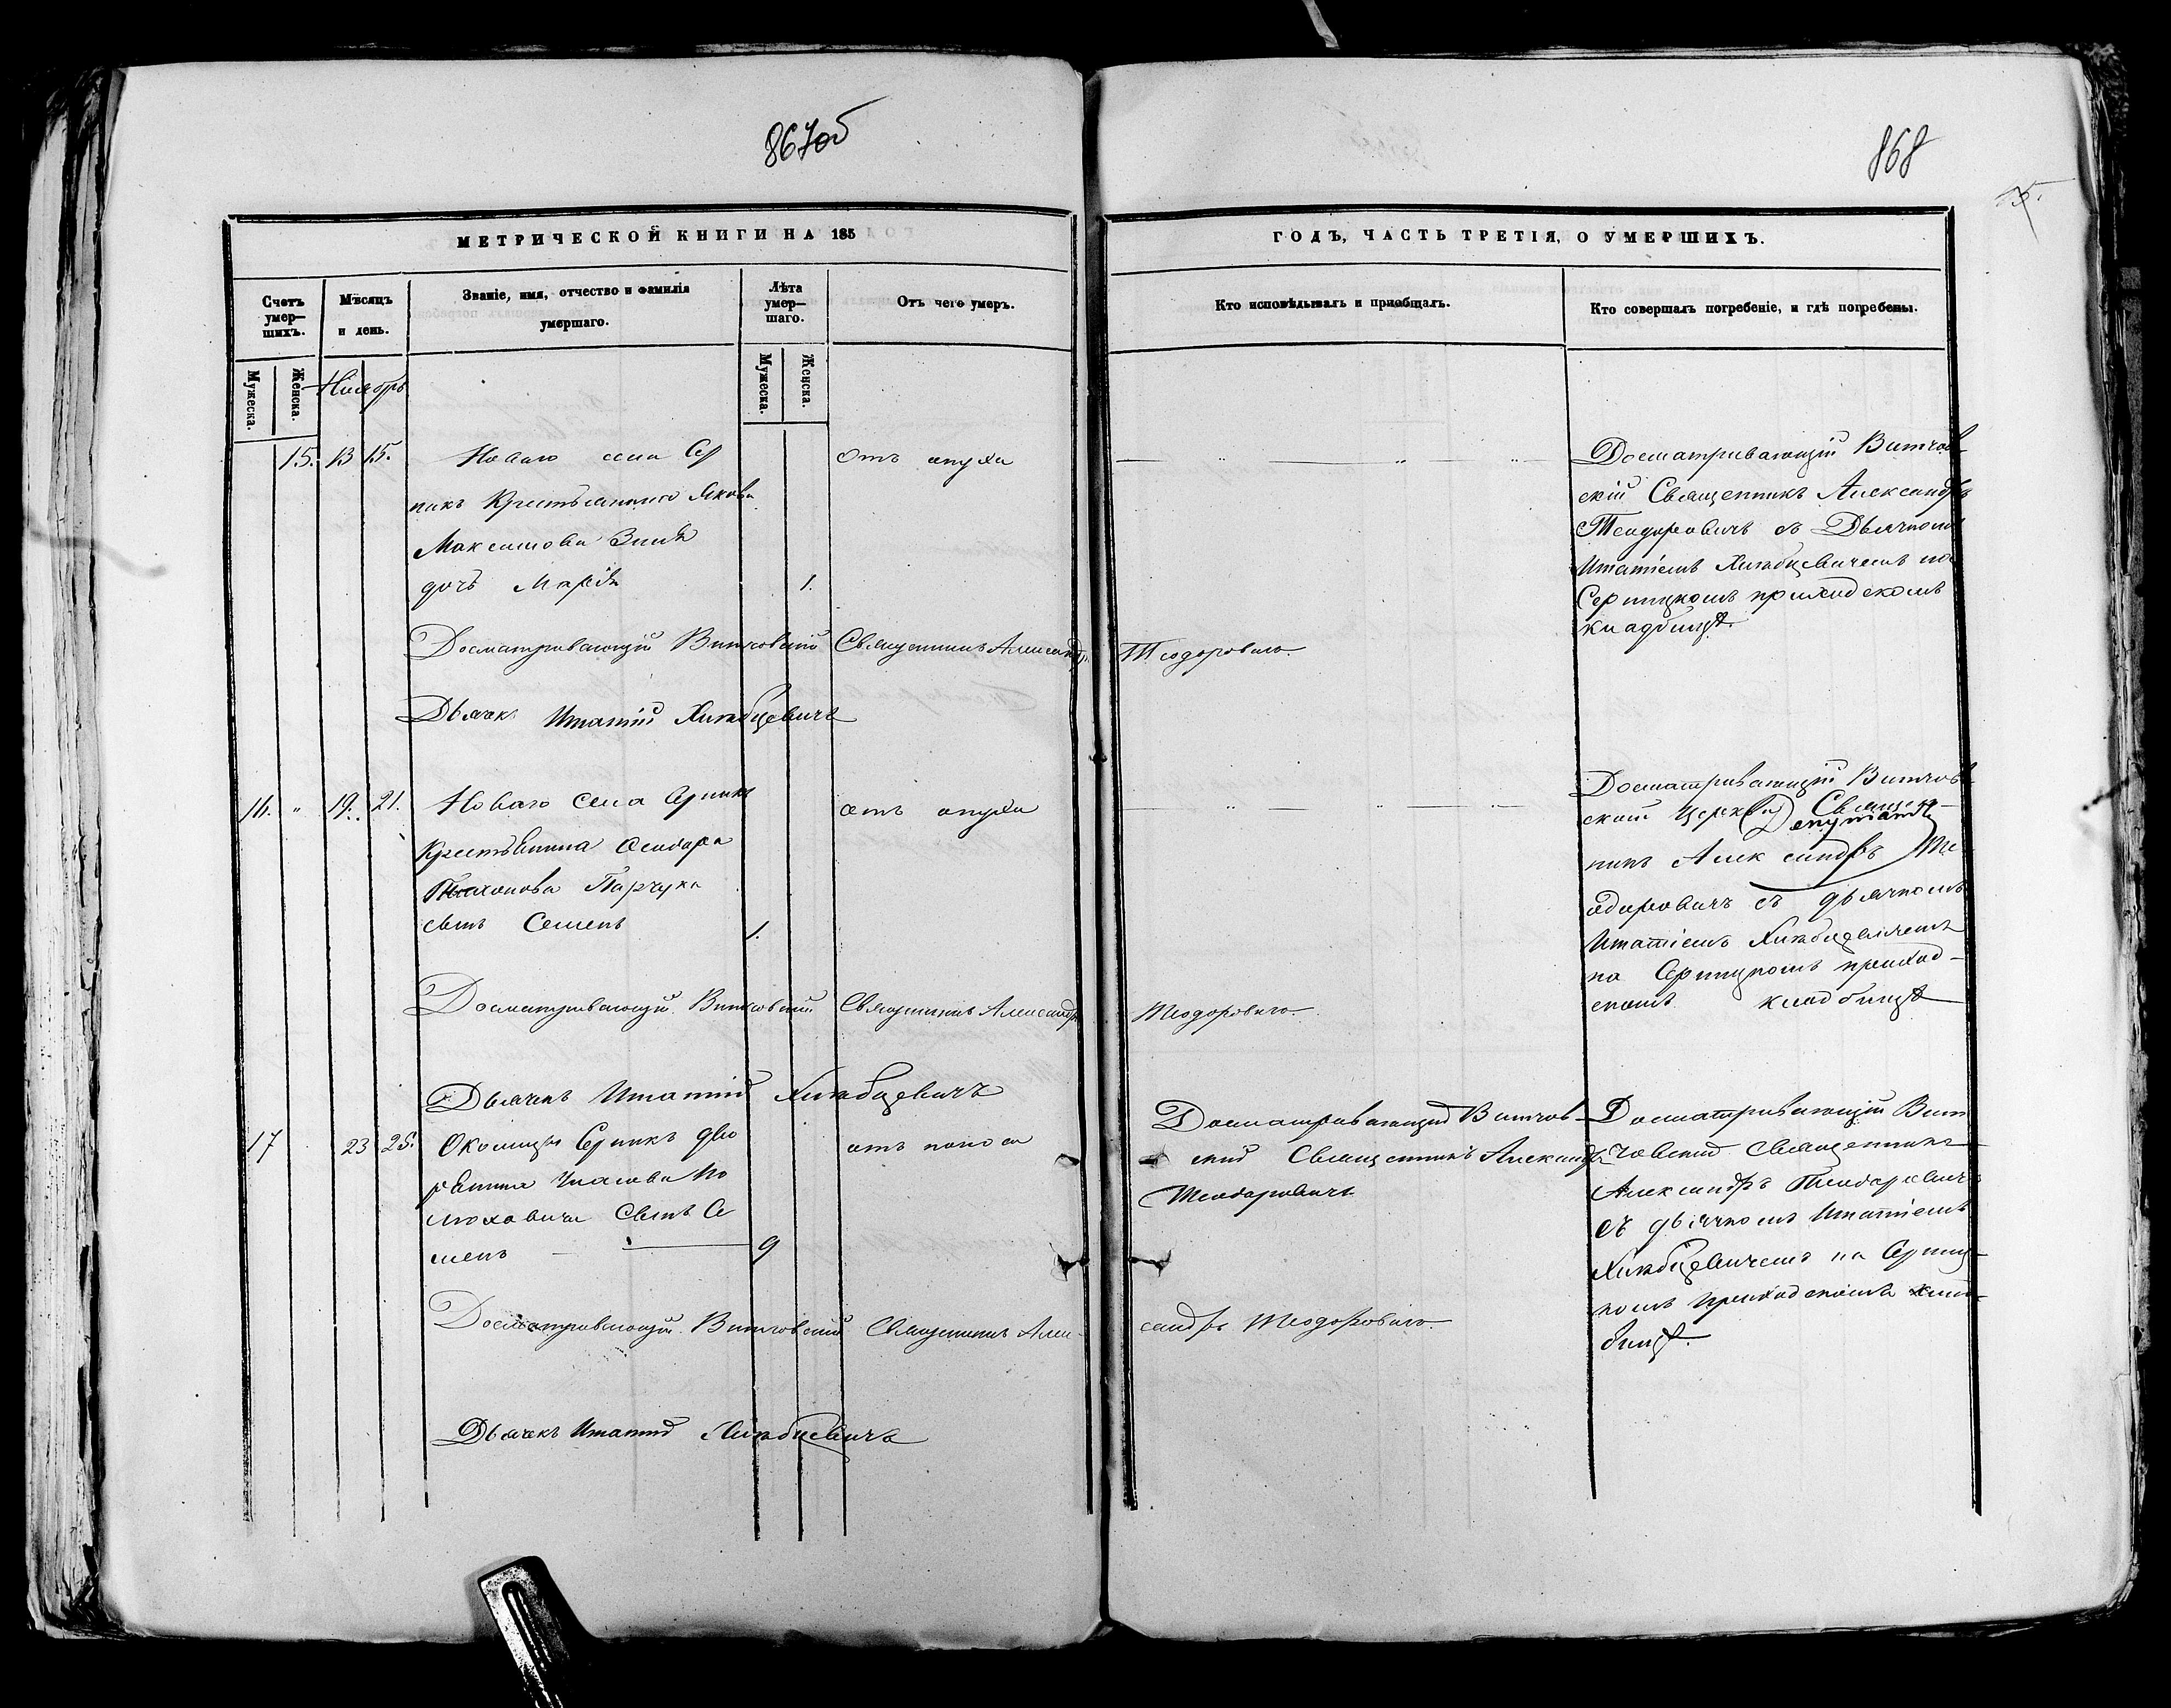 867об
868
МЕТРИЧЕСКОЙ КНИГИ НА 185
ГОДЪ, ЧАСТЬ ТРЕТІЯ, О УМЕРШИХЪ.
Счетъ умер-шихъ.
Мѣсяцъ и день.
Званіе, имя, отчество и фамилія умершаго.
Лѣта умер-шаго.
Отъ чего умеръ.
Кто исповѣдывалъ и пріобщалъ.
Кто совершалъ погребеніе, и гдѣ погребены.
Мужеска.
Женска.
Мужеска.
Женска.
Ноябрь
15. 13 15.
Новаго села Сер
никъ Крестьянина Якова
Максимова
дочь Марія 1.
отъ опухи
Досматривающій Витчов-
скій Священникъ Александръ
Теодоровичъ съ Дьячкомъ
Игнатіемъ на
Серницкомъ приходскомъ
кладбищѣ.
Досматривающій Витчовскій Священникъ Александръ Теодоровичъ.
Дьячекъ Игнатій
16. " 19. 21.
Новаго села Серникъ
Крестьянина Ѳеодора
Тихонова Парчука
сынъ Семенъ 1.
отъ опухи
Досматривающій Витчов-
ской Церкви Священ-
никъ Александръ Те-
одоровичъ съ дьячкомъ
Игнатіемъ
на Серницкомъ приход-
скомъ кладбищѣ
Досматривающій Витчовскій Священникъ Александръ Теодоровичъ.
Дьячекъ Игнатій
17 23 25.
Околицы Серникъ дво
рянина
сынъ Се
менъ — 9
отъ поноса
Досматривающій Витчов-
скій Священникъ Александръ
Теодоровичъ
Досматривающій Вит
човскій Священникъ
Александръ Теодоровичъ
съ дьячкомъ Игнатіемъ
на Серниц-
комъ приходскомъ клад-
бищѣ.
Досматривающій Витчовскій Священникъ Алек-
сандръ Теодоровичъ.
Дьячекъ Игнатій